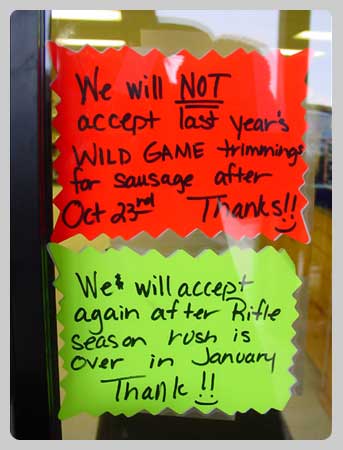 We will NOT
accept last year's
WILD GAME trimmings
for sausage after
Oct 23rd Thanks!!
We will accept
again after Rifle
season rush is
over in January
Thank !!